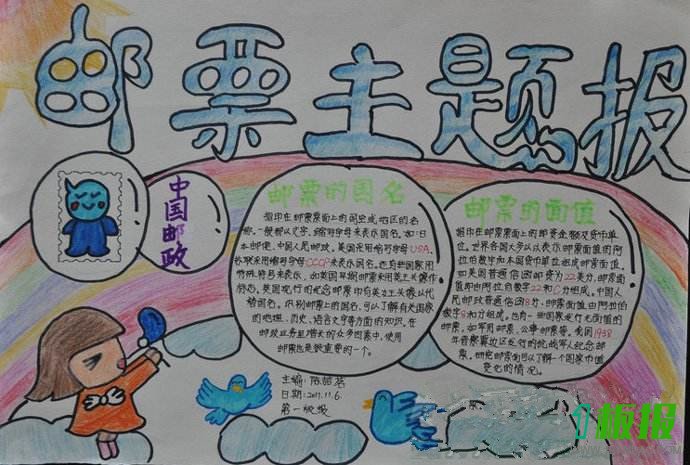 邮票主题报
中国邮政
邮票的国名
指印在邮票票面上的国家或地区的名
称。一般都以文字、缩写字母来表示国名。如:日
本邮便、中国人民邮政。美国采用缩写字母USA,
苏联采用缩写字母CCCP来表示国名。也有些国家用
特殊符号来表示,如英国早期邮票采用英王头像作
铭志,英国现行的纪念邮票印有英王头像以代
替国名。识别邮票上的国名,可以了解有关国家
的地理、历史、语言文字等方面的知识。在
邮政业务且增长的众多因素中,使用
邮票也是较重要的一个。
邮票的面值
指印在邮票票面上的邮资金额及货币单
位。世界各国大多以表示邮票面值的阿
拉伯数字和本国货币单位组成邮票面值。
如美国普通信函邮资为22美分,邮票面
值即由阿拉伯数字22和C分组成。中国人
民邮政普通信函8分,邮票面值由阿拉伯
数字8和分组成。也有一些国家发行无面值的
邮票,如军用邮票、公事邮票等。我国1938
年晋察冀边区发行的抗战军人纪念邮
票。研究邮票面可以了解一个国家币值
变化的情况。
主编:陈
日期:2011.11.6
第一板报
板报